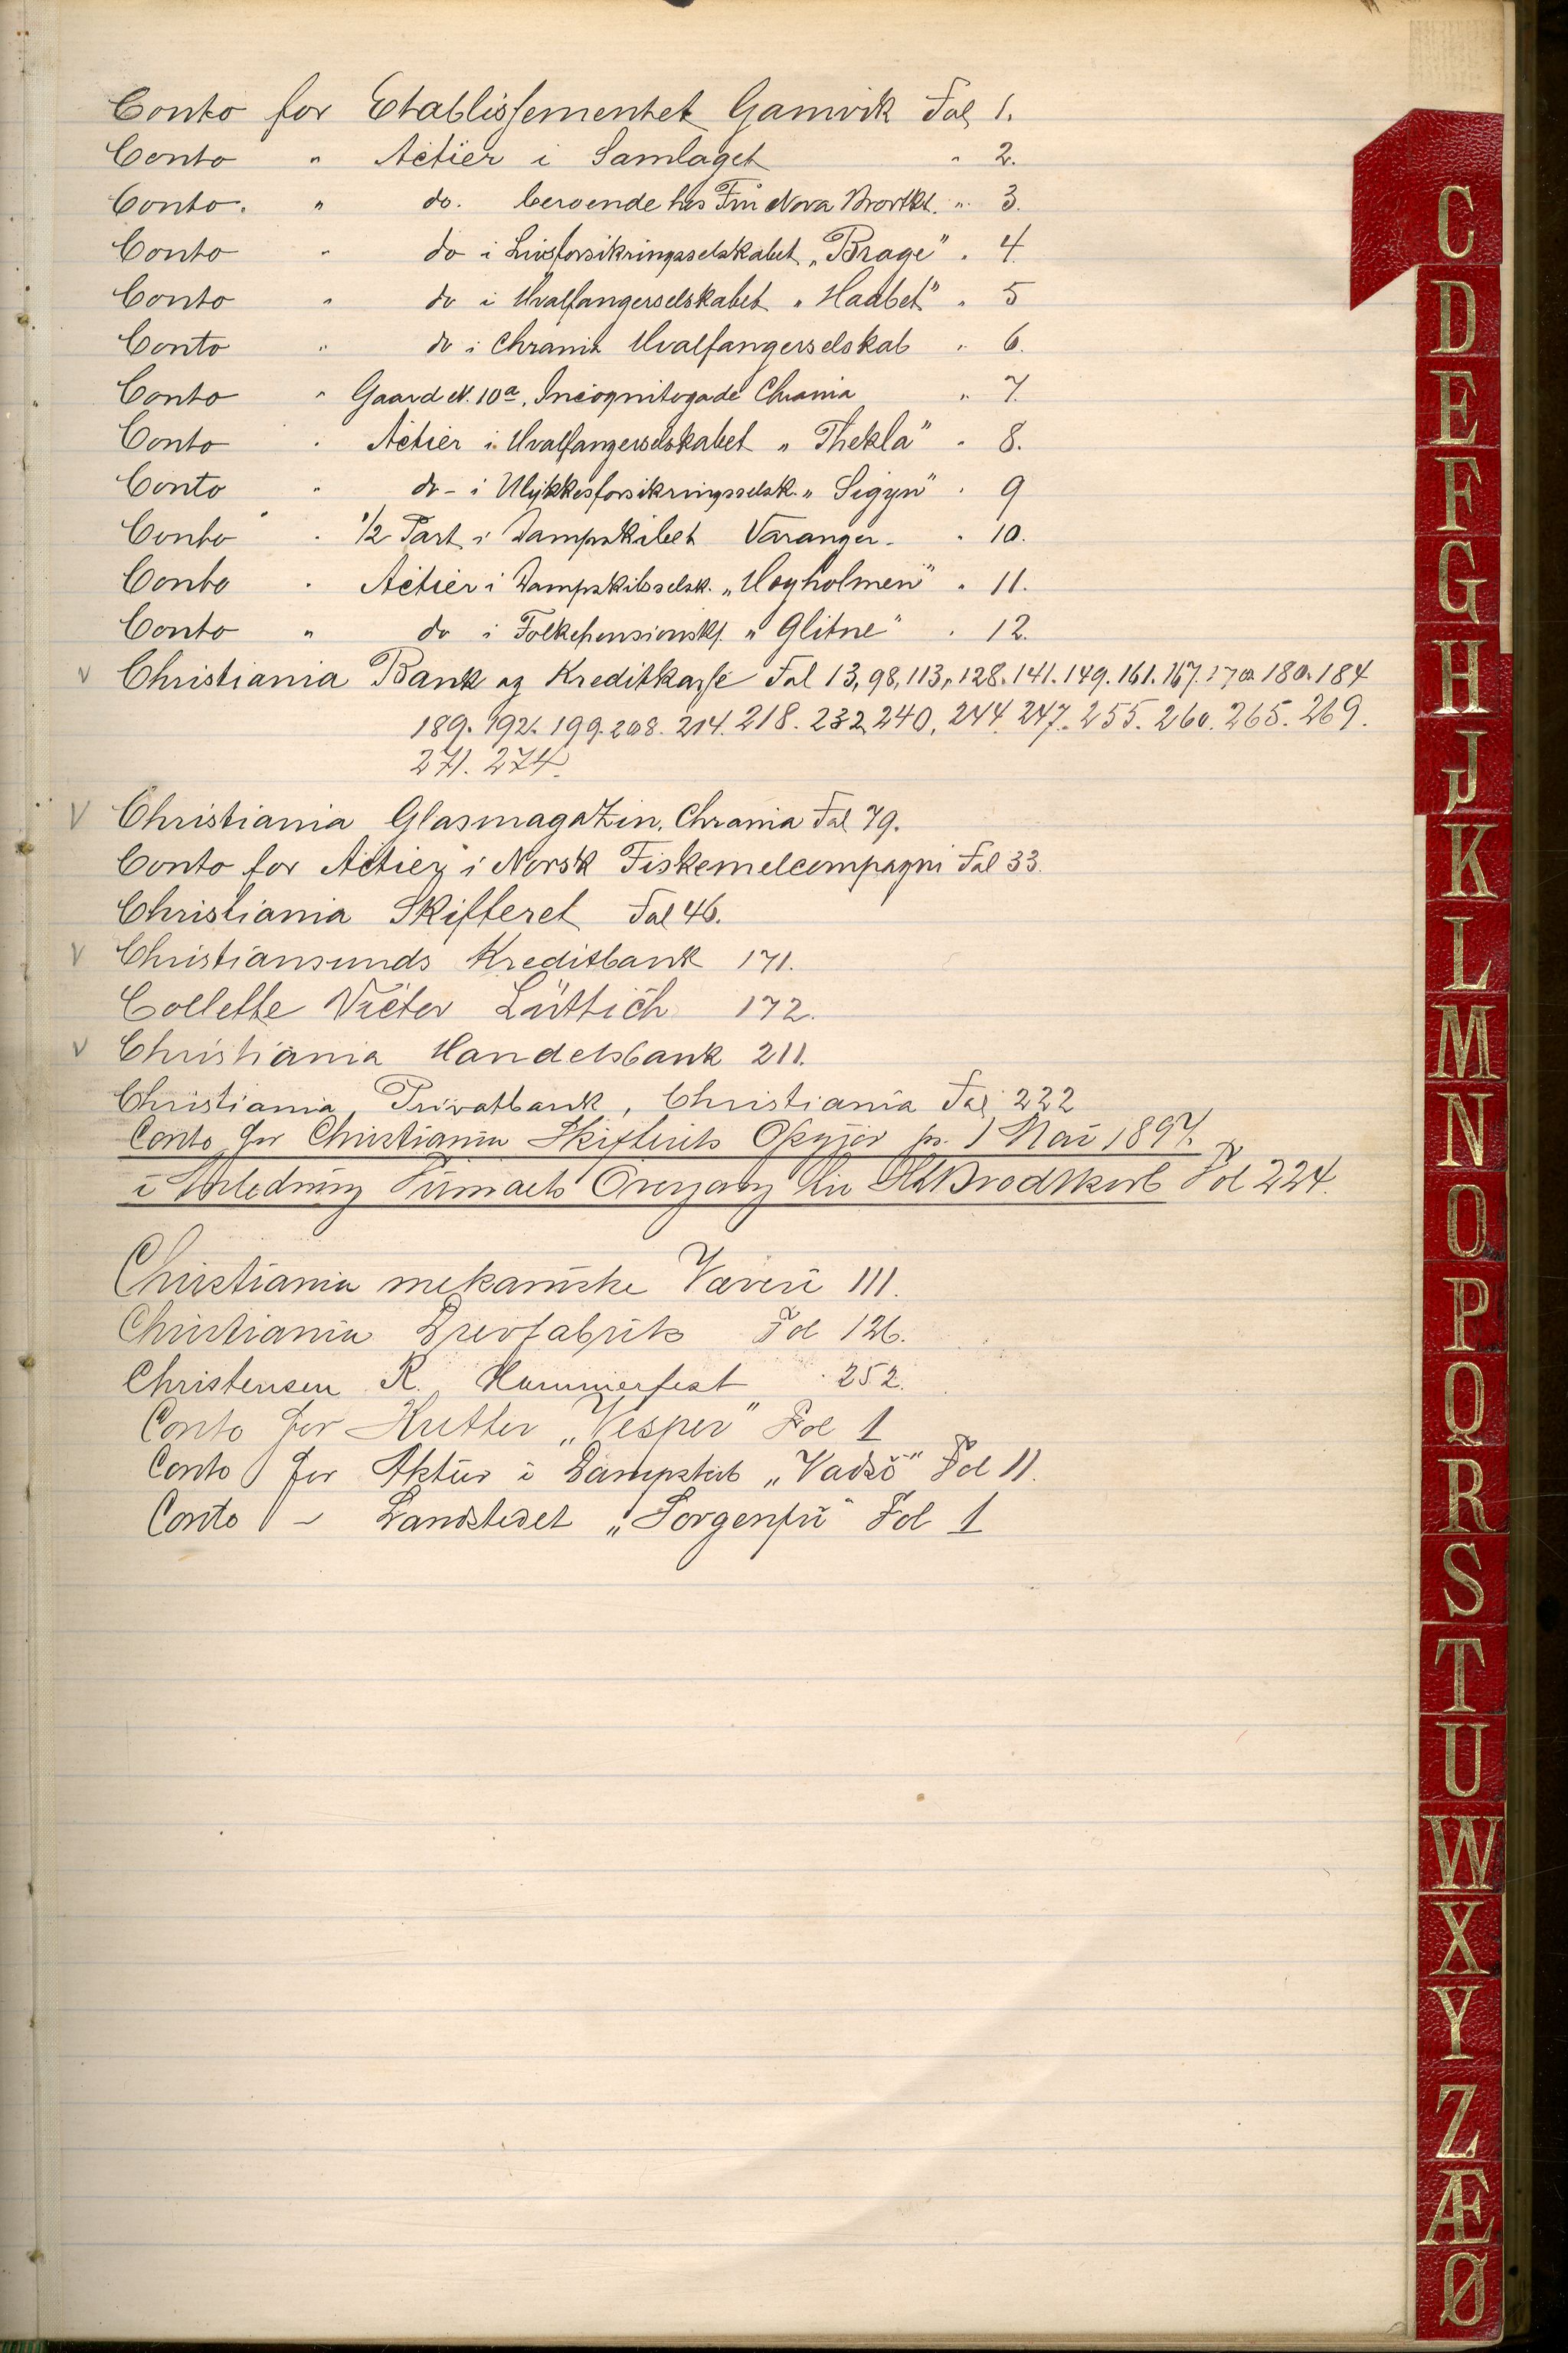 Conto for Etablissementet Gamvik Fol 1.
Conto " Actier i Samlaget " 2.
Conto. " do. beroende hos Fru Nora Brodtk. " 3.
Conto " do i Livsforsikringsselskabet „Brage" " 4.
Conto " do i Hvalfangerselskabet „Haabet" " 5
Conto " do i Chrania Hvalfangerselskab " 6.
Conto " Gaard N. 10a, Incognitogade Chrania " 7.
Conto " Actier i Hvalfangerselskabet „Thekla" " 8.
Conto " do - i Ulykkesforsikringsselsk. „Sigyn" " 9
Conto " 1/2 Part i Dampskibet Varanger. " 10.
Conto " Actier i Dampskibsselsk. „Høyholmen" " 11.
Conto " do i Folkepensionskf. „Glitne" " 12.
v Christiania Bank og Kreditkasse Fol 13, 98, 113, 128. 141. 149. 161. 167. 170. 180. 184
189. 192. 199. 208. 214. 218. 232, 240, 244. 247. 255. 260. 265. 269.
271. 274.
v Christiania Glasmagazin, Chrania Fol 79.
Conto for Actier i Norsk Fiskemelcompagni Fol 33.
Christiania Skifteret Fol 46.
v Christiansunds Kreditbank 171.
Collette Victor Lüttich 172.
v Christiania Handelsbank 211.
Christiania Privatbank, Christiania Fol 222
Conto for Christiania Skifterets Opgjør pr. 1 Mai 1897.
i Anledning Firmaets Overgang til Brodtkorb Fol 224.
Christiania mekaniske Væveri 111.
Christiania Drevfabrik Fol 126.
Christensen R. Hammerfest 252.
Conto for Kutter „Vesper" Fol 1
Conto for Aktier i Dampskib „Vadsö" Fol 11.
Conto - Landstedet „Sorgenfri" Fol 1
C
D
E
F
G
H
J
K
L
M
N
O
P
Q
R
S
T
U
W
X
Y
Z
Æ
Ø